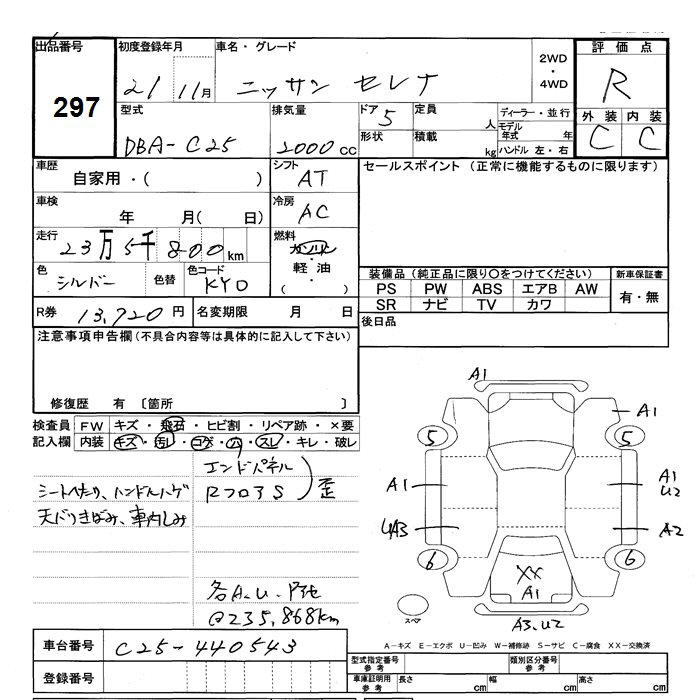 出品番号 初度登録年月 車名・グレード 2WD・4WD 評価点
297 21 11月 ニッサン セレナ R
型式 排気量 ドア 5 定員 人 ディーラー・並行 外装 内装
DBA-C25 2000cc 形状 積載 kg モデル年式 年 ハンドル 左・右 C C
車歴 シフト セールスポイント (正常に機能するものに限ります)
自家用・( ) AT
車検 冷房
年 月( 日) AC
走行 燃料
23万5千800km ガソリン・軽油
( )
色 シルバー 色替 色コード KY0
装備品 (純正品に限り○をつけてください) 新車保証書
PS PW ABS エアB AW 有・無
SR ナビ TV カワ
R券 13,720円 名変期限 月 日 後日品
注意事項申告欄 (不具合内容等は具体的に記入して下さい)
修復歴 有 〔箇所 〕
検査員 FW キズ・飛石・ヒビ割・リペア跡・×要
記入欄 内装 キズ・汚レ・コゲ・穴・スレ・キレ・破レ
エンドパネル
RフロアS 歪
シートへたり、ハンドルハゲ
天バリきばみ、車内しみ
各A.U.凹他
@235,868km
A1
A1
5 5
A1 A1
U2
UA3 A2
6 6
XX
A1
スペア A3、U2
A-キズ E-エクボ U-凹み W-補修跡 S-サビ C-腐食 XX-交換済
車台番号 C25-440543
登録番号
型式指定番号 参考 類別区分番号 参考
車庫証明用 参考 長さ cm 幅 cm 高さ cm